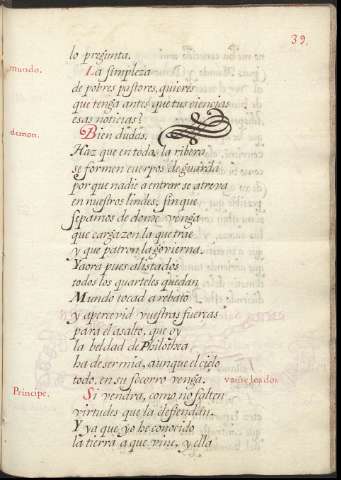 39.
lo pregunta.
mundo. La simpleza
de pobres pastores, quieres
que tenga antes que tus ciencias
esas noticias?
demon. Bien dudas.
Haz que en toda la ribera
se formen cuerpos de guarda
por que nadie a entrar se atreva
en nuestros lindes, sin que
sepamos de donde venga
que cargazon la que trae
y que patron la govierna.
Yaora pues alistados
todos los quarteles quedan
Mundo tocad a rebato
y apercevid vuestras fuercas
para el asalto, que oy
la beldad de Philothea
ha de ser mia, aunque el cielo
todo, en su socorro venga. vanse los dos
Principe. Si vendra, como no falten
virtudes que la defiendan.
Y ya que yo he conocido
la tierra a que vine, y ella